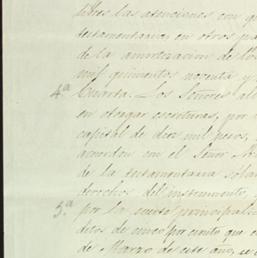 libres las atenciones con q
testamentaria en otros pa
de la amortizacion de l
mil quinientos noventa y
4.ª Cuarta. Los Señores al
en otorgar escrituras, por
capital de diez mil pesos,
acuerdan en el Señor
de la testamentaria
derechos del instrumento,
5.ª por la suerte principal
ditos de cinco por ciento que
de Marzo de este año, se